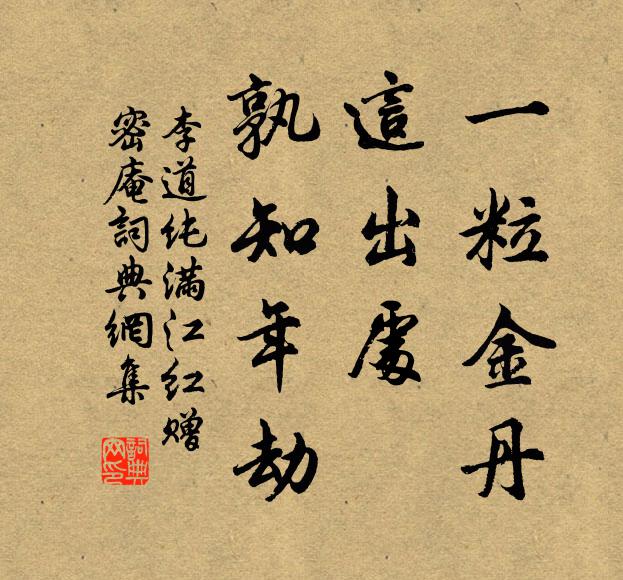 一粒金丹
這出處
孰知年劫
李道纯满江红赠
密庵詞典網集
詞典网印